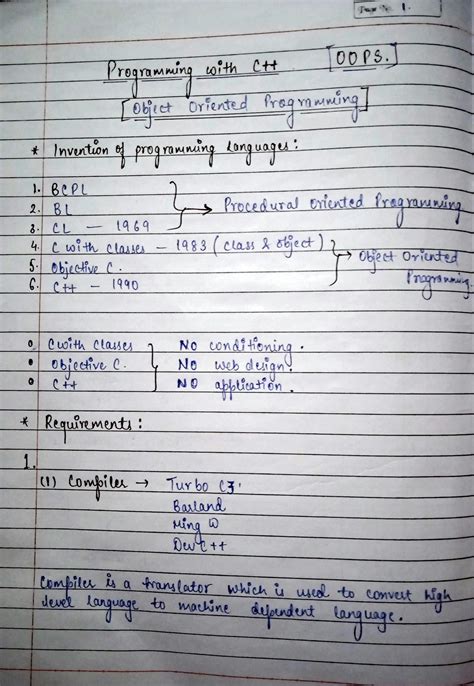 Page No. 1.
Programming with C++ [OOPS.]
[Object Oriented Programming]
* Invention of programming languages:
1. BCPL
2. BL → Procedural oriented Programming
3. CL — 1969
4. C with classes — 1983 (class & object)
5. Objective C. → Object Oriented Programming.
6. C++ — 1990
o C with Classes No conditioning.
o Objective C. No web design.
o C++ No application.
* Requirements:
1.
(1) Compiler → Turbo C3'
Borland
Ming W
Dev C++
Compiler is a translator which is used to convert high
level language to machine dependent language.